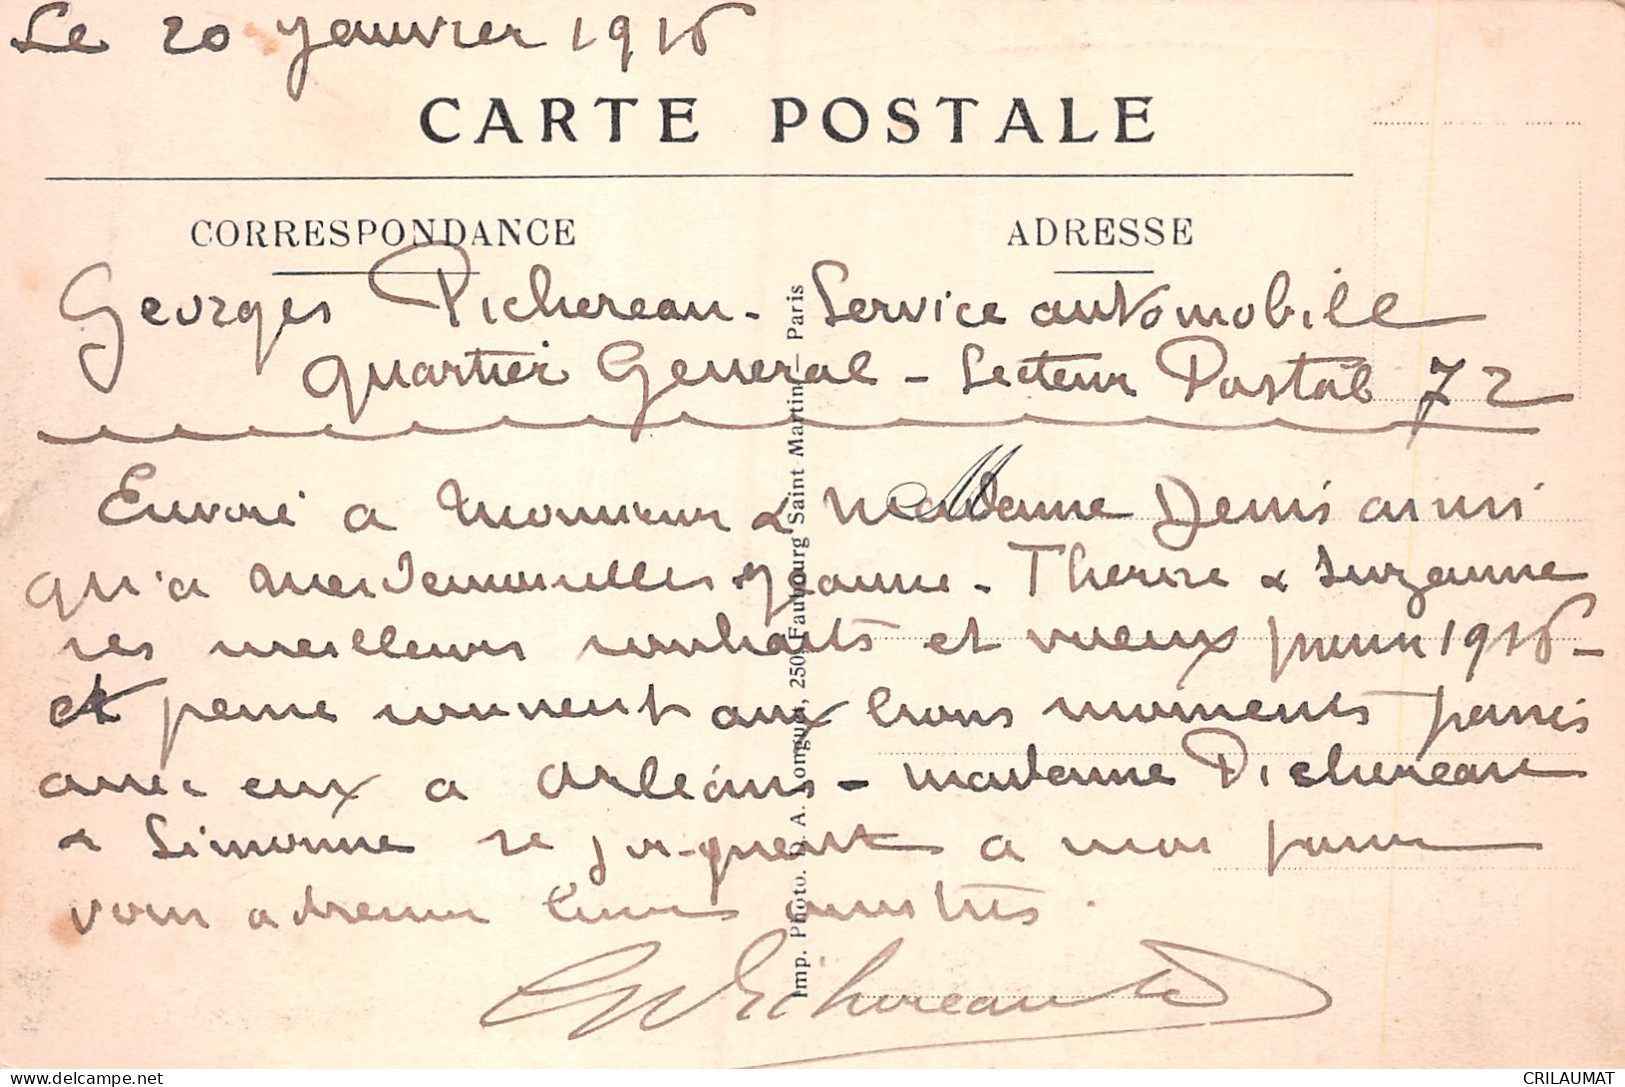 Le 20 Janvier 1916
CARTE POSTALE
CORRESPONDANCE
ADRESSE
Georges Pichereau - Service automobile
Quartier General - Secteur Postal 72
Envoie a Monsieur & Madame Denis ainsi
qu'a Mesdemoiselles Jeanne - Therese & Suzanne
ses meilleurs souhaits et vœux pour 1916 -
et pense souvent aux bons moments passés
avec eux a Orléans - Madame Pichereau
& Simonne se joignent a moi pour
vous adresser leurs
GPichereau
Imp. Photo. D. A. Longuet, 250, Faubourg Saint Martin - Paris
CRILAUMAT